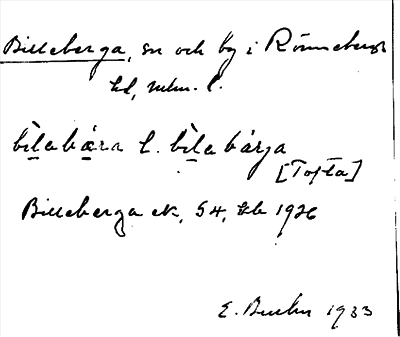 Billeberga, sn och by i Rönnebergs
hd, mlm. l.
bìlabǽra l. bìlabárja
[Tofta]
Billeberga ek, S4, bl. 1926
E. 1933